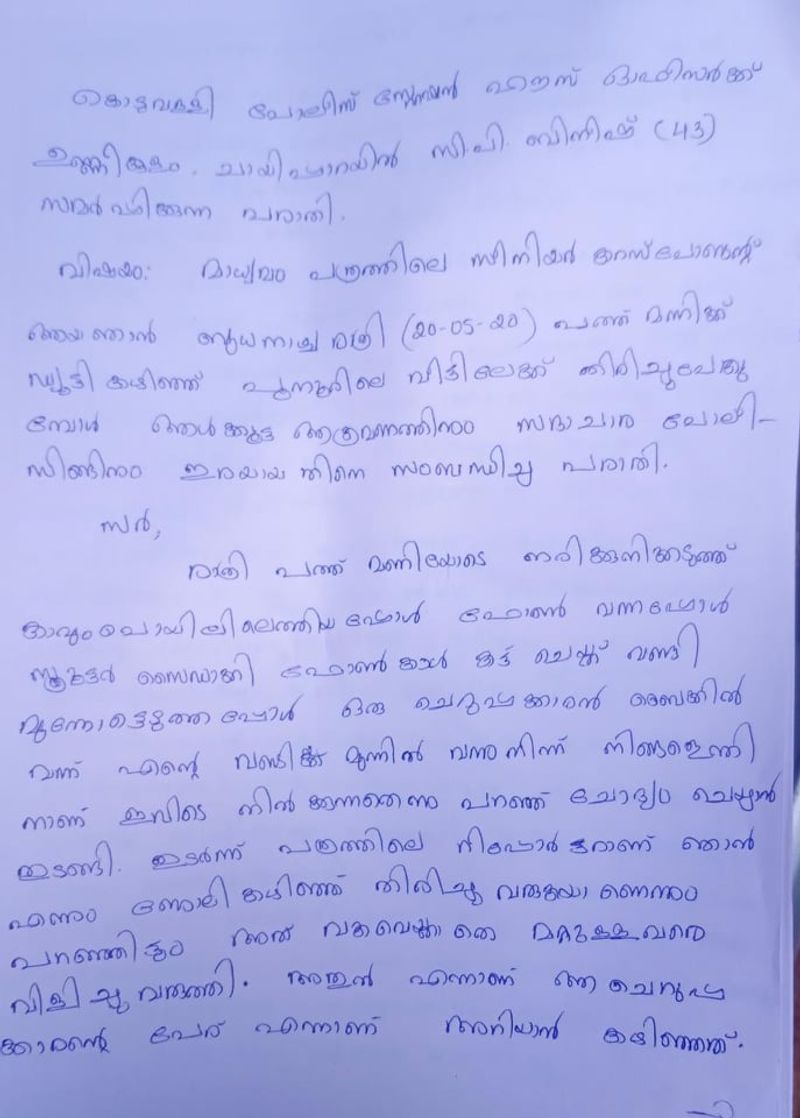 കൊടുവള്ളി പോലീസ് സ്റ്റേഷൻ ഹൗസ് ഓഫിസർക്ക്
ഉണ്ണികുളം. ചായിപ്പറയിൽ സി.പി. ബിനീഷ് (43)
സമർപ്പിക്കുന്ന പരാതി.
വിഷയം: മാധ്യമം പത്രത്തിലെ സീനിയർ കറസ്പോണ്ടന്റ്
ആയ ഞാൻ ബുധനാഴ്ച രാത്രി (20-05-20) പത്ത് മണിക്ക്
ഡ്യൂട്ടി കഴിഞ്ഞ് പൂനൂരിലെ വീട്ടിലേക്ക് തിരിച്ചുപോകു
മ്പോൾ ആൾക്കൂട്ട ആക്രമണത്തിനും സദാചാര പോലീ-
സിങ്ങിനും ഇരയായതിനെ സംബന്ധിച്ച പരാതി.
സർ,
രാത്രി പത്ത് മണിയോടെ നരിക്കുനിക്കടുത്ത്
കാവുംപൊയിലിലെത്തിയപ്പോൾ ഫോൺ വന്നപ്പോൾ
സ്കൂട്ടർ സൈഡാക്കി ഫോൺകാൾ കട്ട് ചെയ്ത് വണ്ടി
മുന്നോട്ടെടുത്തപ്പോൾ ഒരു ചെറുപ്പക്കാരൻ ബൈക്കിൽ
വന്ന് എന്റെ വണ്ടിക്ക് മുന്നിൽ വന്നുനിന്ന് നിങ്ങളെന്തി
നാണ് ഇവിടെ നിൽക്കുന്നതെന്നു പറഞ്ഞ് ചോദ്യം ചെയ്യാൻ
തുടങ്ങി. തുടർന്ന് പത്രത്തിലെ റിപ്പോർട്ടറാണ് ഞാൻ
എന്നും ജോലി കഴിഞ്ഞ് തിരിച്ചു വരുകയാണെന്നും
പറഞ്ഞിട്ടും അത് വകവെക്കാതെ മറ്റുള്ളവരെ
വിളിച്ചുവരുത്തി. അതുൽ എന്നാണ് ആ ചെറുപ്പ
ക്കാരന്റെ പേര് എന്നാണ് അറിയാൻ കഴിഞ്ഞത്.